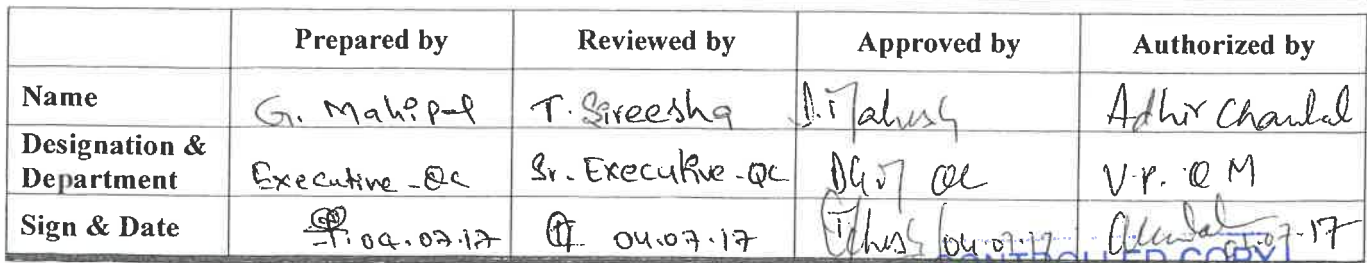 Prepared by Reviewed by Approved by Authorized by
Name G. Mahipal T. Sireesha D. Mahesh Adhir Chandal
Designation &
Department Executive - QC Sr. Executive - QC DGM QC V.P. QM
Sign & Date 04.07.17 04.07.17 04.07.17 07.17
CONTROLLED COPY